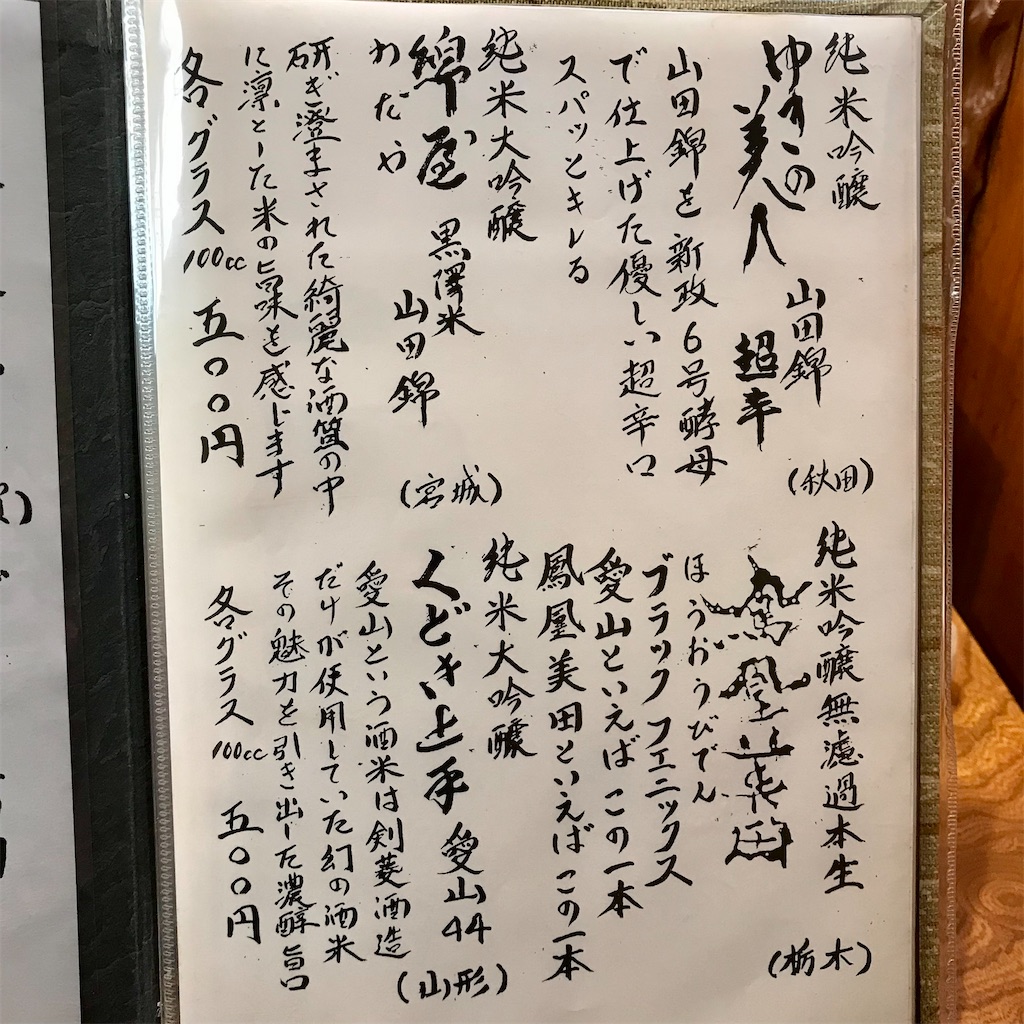 純米吟醸
ゆきの美人 山田錦
超辛
(秋田)
山田錦を新政6号酵母
で仕上げた優しい超辛口
スパッとキレる
純米大吟醸
綿屋 黒澤米
山田錦
(宮城)
わたや
研ぎ澄まされた綺麗な酒質の中
に凛とした米の旨味を感じます
各グラス100cc 五〇〇円
純米吟醸無濾過本生
鳳凰美田
(栃木)
ほうおうびでん
ブラックフェニックス
愛山といえばこの一本
鳳凰美田といえばこの一本
純米大吟醸
くどき上手 愛山44
(山形)
愛山という酒米は剣菱酒造
だけが使用していた幻の酒米
その魅力を引き出した濃醇旨口
各グラス100cc 五〇〇円